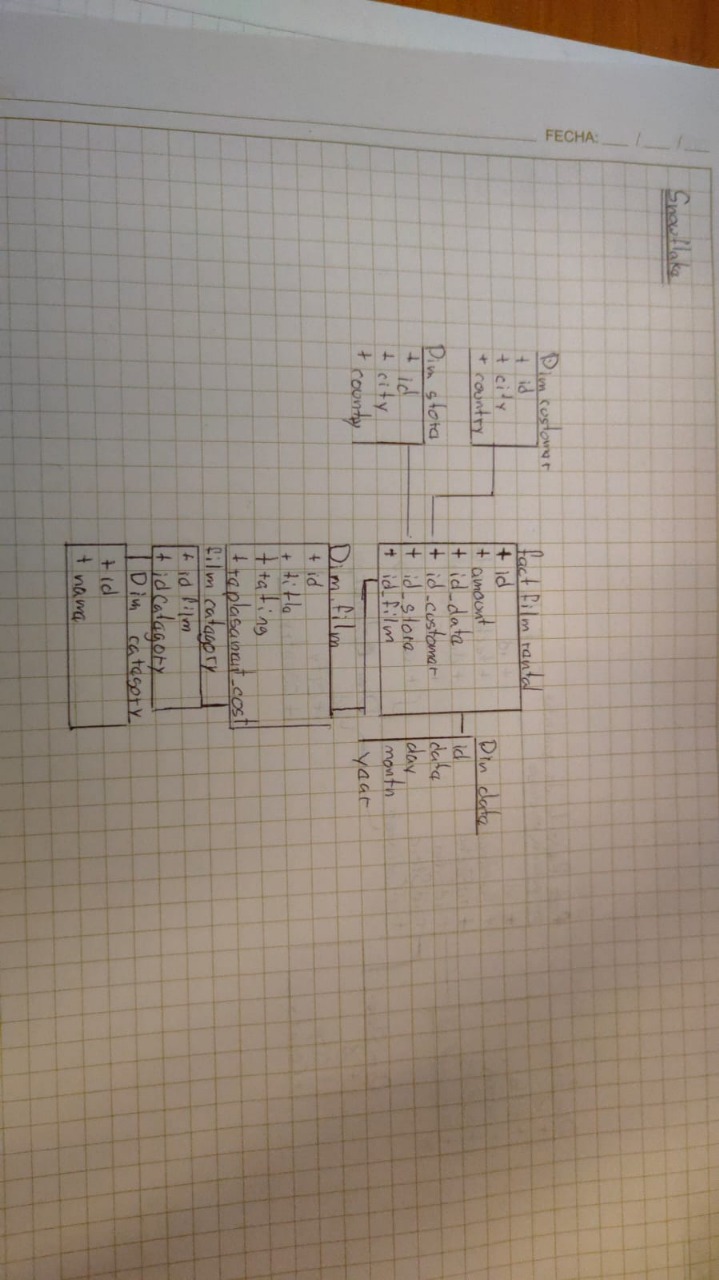 FECHA: __ / __ / __
Snowflake
Dim customer
+ id
+ city
+ country
Dim store
+ id
+ city
+ country
fact film rental
+ id
+ amount
+ id_date
+ id_customer
+ id_store
+ id_film
Dim date
id
date
day
month
year
Dim film
+ id
+ title
+ rating
+ replasament_cost
film category
+ id film
+ id category
Dim category
+ id
+ name